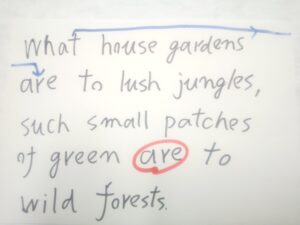 What house gardens
are to lush jungles,
such small patches
of green are to
wild forests.